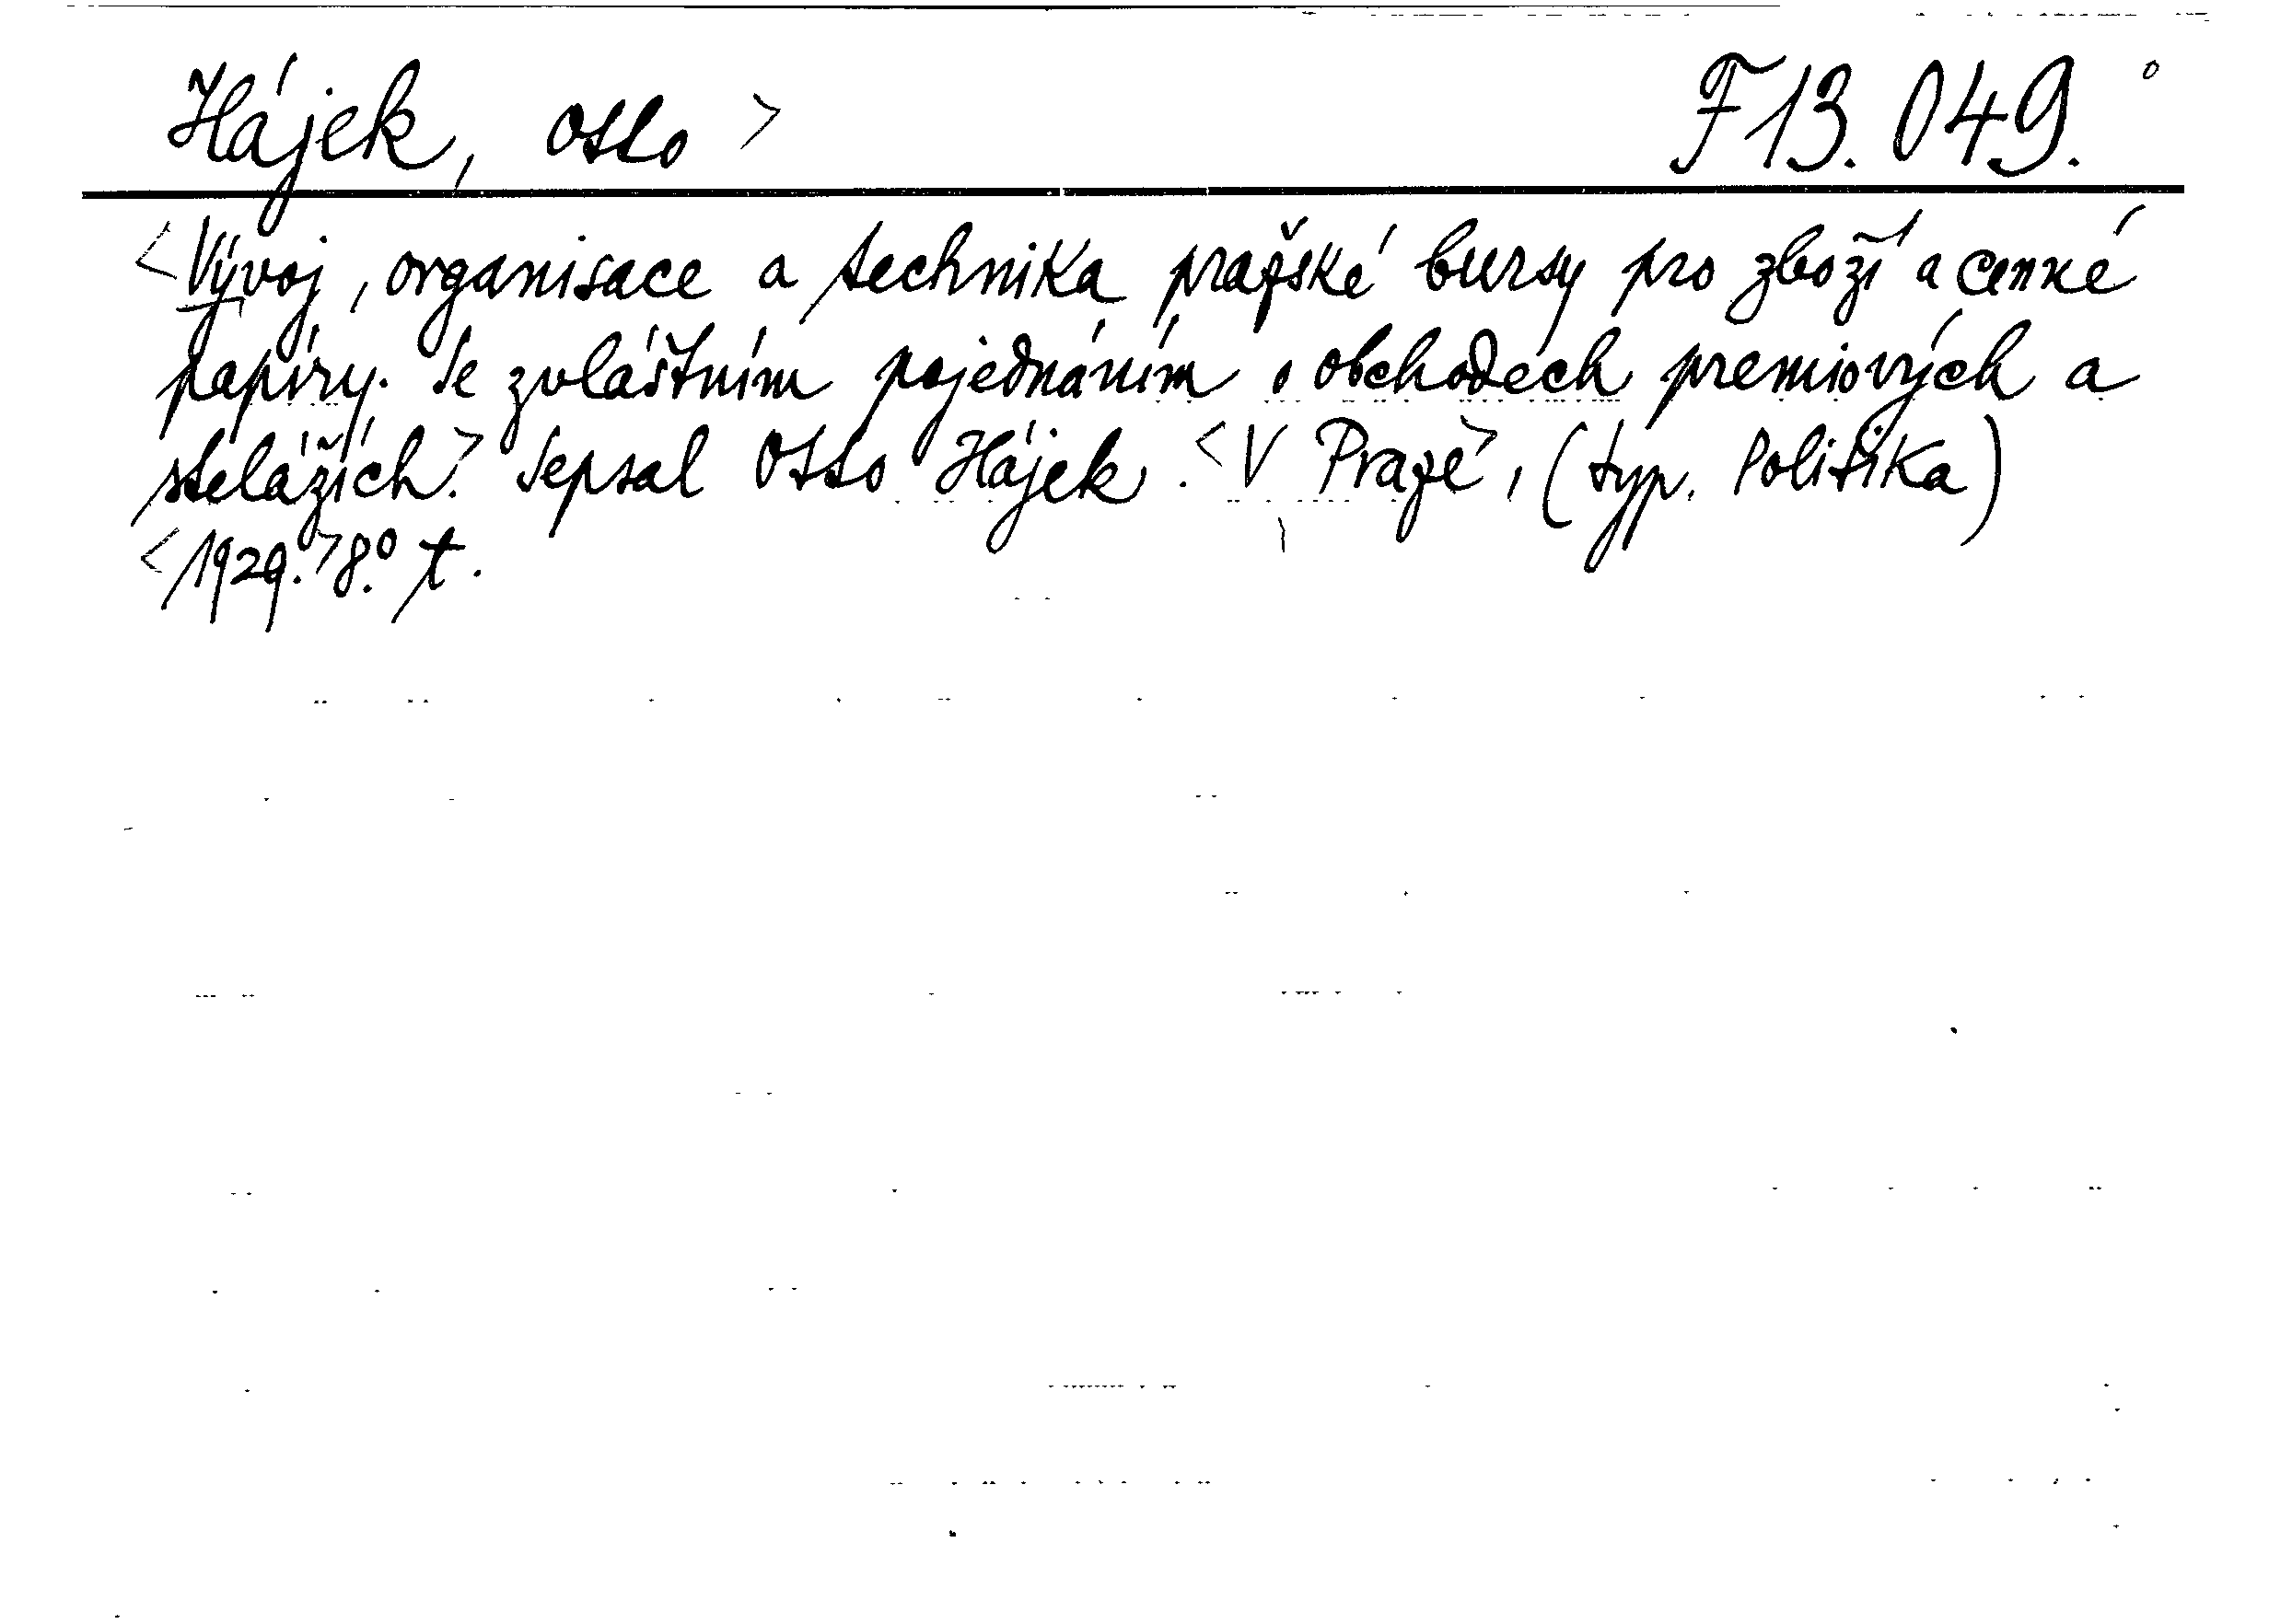 Hájek, Otto > F 13.049.°
<Vývoj, organisace a technika pražské bursy pro zboží a cenné
papíry. Se zvláštním pojednáním o obchodech premiových a
stelážích.> Sepsal Otto Hájek. <V Praze>, (typ. Politika)
<1929.> 8.° t.